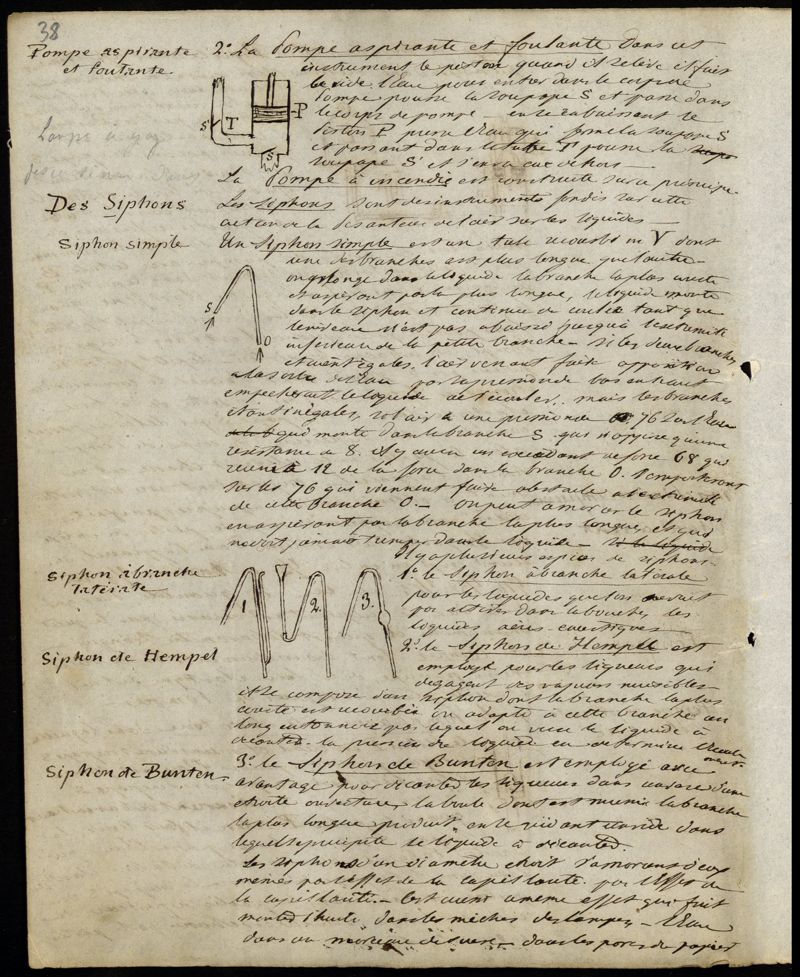 38
Pompe aspirante
et foulante
2º La Pompe aspirante et foulante dans cet
instrument le piston quand il se lève il fait
le vide. l'Eau pour entrer dans le corps de
Pompe pousse la soupape S et passe dans
le corps de pompe en se rabaissant le
Piston P presse l'Eau qui ferme la soupape S
et passant dans le tube T pousse la
soupape S' et s'en va au dehors
S' T P S
La Pompe à incendie est construite sur ce principe
Des Siphons
Les siphons sont des instruments fondés sur cette
action de la Pesanteur de l'air sur les liquides
Siphon simple
Un Siphon simple est un tube recourbé en V dont
une des branches est plus longue que l'autre
on plonge dans le liquide la branche la plus courte
et aspirant par la plus longue, le liquide monte
dans le siphon et continue de couler tant que
le niveau n'est pas abaissé jusqu'à l'extrémité
inférieure de la petite branche - si les deux branches
étaient égales, l'air venant faire opposition
à la sortie de l'Eau par sa pression de bas en haut
empêcherait le liquide de s'écouler, mais les branches
étant inégales, soit l'air à une pression de 76 et l'Eau
qui monte dans la branche S qui n'oppose qu'une
résistance de 8. il y aura un excédant de force 68 qui
réuni à 12 de la force dans la branche O. l'emporteront
sur les 76 qui viennent faire obstacle à l'extrémité
de cette branche O. - on peut amorcer le siphon
en aspirant par la branche la plus longue, et qui
ne doit jamais tremper dans le liquide -
S O
Il y a plusieurs espèces de siphons
Siphon à branche
latérale
1º le Siphon à branche latérale
pour les liquides que l'on ne doit
pas attirer dans la bouche, les
liquides âcres - caustiques
1 2. 3.
Siphon de Hempel
2º le Siphon de Hempel est
employé pour les liqueurs qui
dégagent des vapeurs nuisibles
il se compose d'un siphon dont la branche la plus
courte est recourbée on adapte à cette branche un
long entonnoir par lequel on verse le liquide à
décanter. la pression du liquide en détermine l'écoule
ment.
Siphon de Bunten
3º le Siphon de Bunten est employé avec
avantage pour décanter les liqueurs dans un vase d'une
étroite ouverture, la boule dont est munie la branche
la plus longue produit en se vidant un vide dans
lequel se précipite le liquide à décanter.
Les siphons d'un diamètre étroit s'amorcent d'eux
mêmes par l'effet de la capillarité. par l'effet de
la capillarité - c'est aussi à même effet que fait
monter l'huile dans les mèches des lampes - l'Eau
dans un morceau de sucre - dans les pores du papier